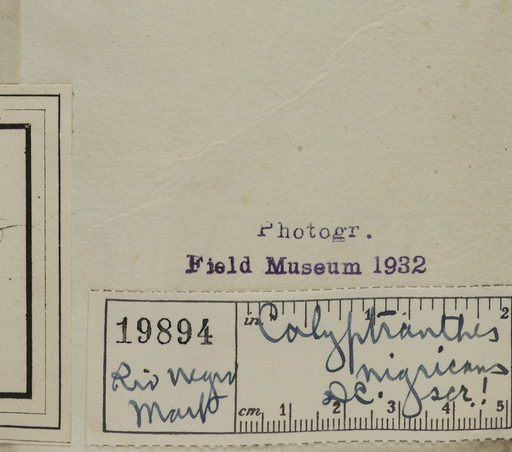 Photogr.
Field Museum 1932
19894
Rio Negro
Mart
in 1 2
Calyptranthes
nigricans
DC. scr!
cm 1 2 3 4 5